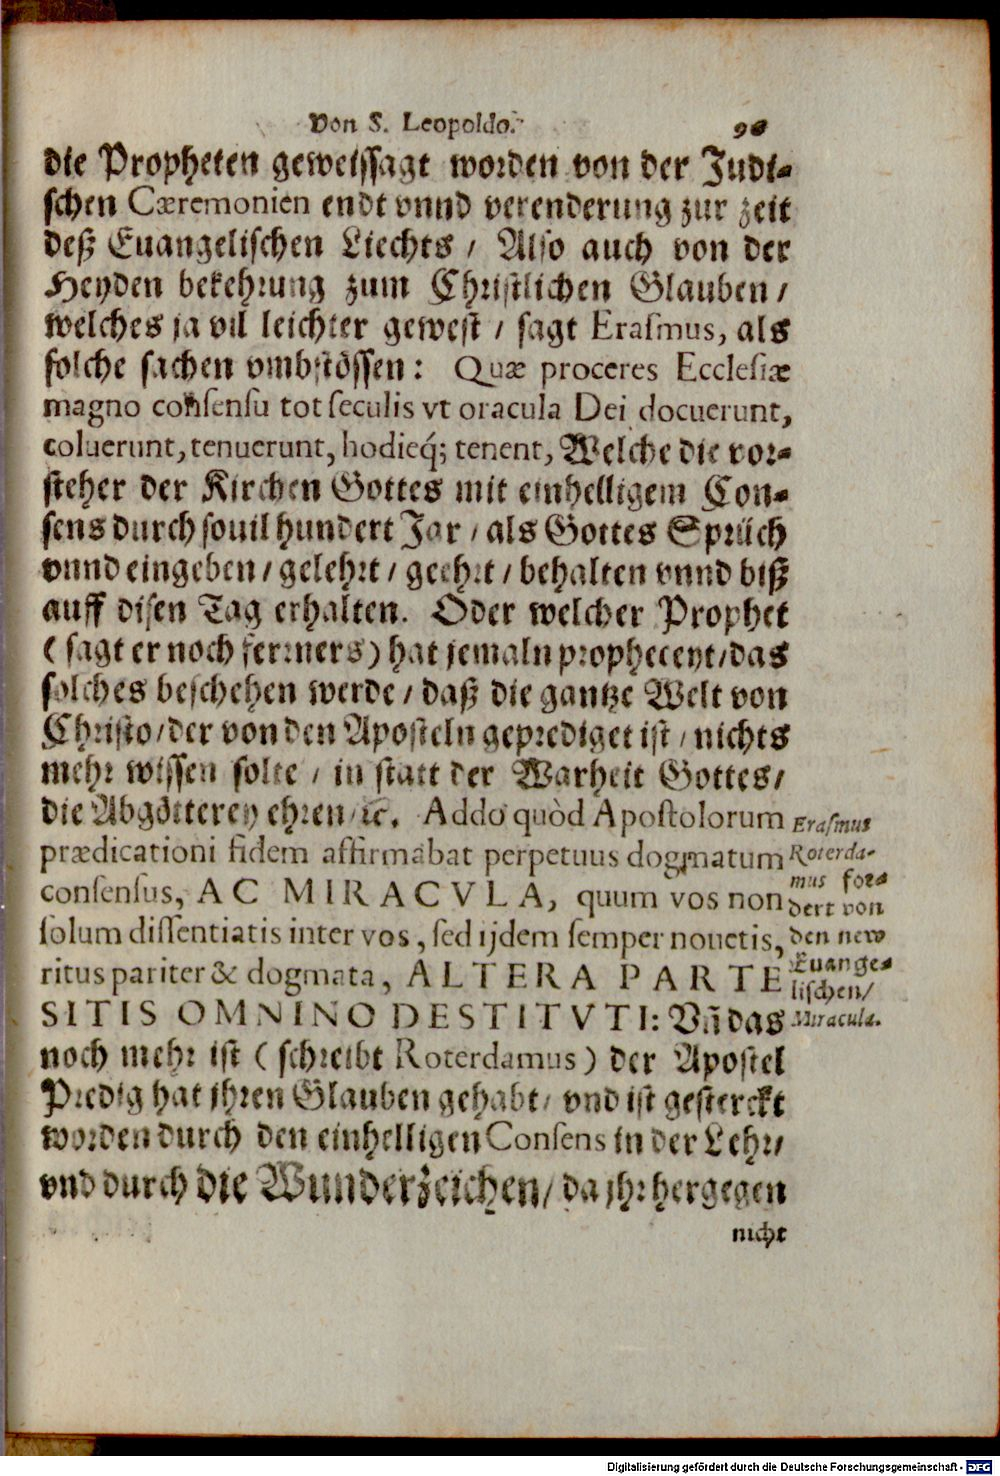 Von S. Leopoldo.
die Propheten geweissagt worden von der Judi-
schen Cæremonien endt vnnd verenderung zur zeit
deß Euangelischen Liechts / Also auch von der
Heyden bekehrung zum Christlichen Glauben /
welches ja vil leichter gewest / sagt Erasmus, als
solche sachen vmbstössen: Quæ proceres Ecclesiæ
magno consensu tot seculis vt oracula Dei docuerunt,
coluerunt, tenuerunt, hodieq́; tenent, Welche die vor-
steher der Kirchen Gottes mit einhelligem Con-
sens durch souil hundert Jar / als Gottes Sprüch
vnnd eingeben / gelehrt / geehrt / behalten vnnd biß
auff disen Tag erhalten. Oder welcher Prophet
( sagt er noch ferrners ) hat jemaln propheceyt / das
solches beschehen werde / daß die gantze Welt von
Christo / der von den Aposteln geprediget ist / nichts
mehr wissen solte / in statt der Warheit Gottes /
die Abgötterey ehren / ꝛc. Addo quòd Apostolorum
prædicationi fidem affirmabat perpetuus dogmatum
consensus, AC MIRACVLA, quum vos non
solum dissentiatis inter vos, sed ijdem semper nouetis,
ritus pariter & dogmata, ALTERA PARTE
SITIS OMNINO DESTITVTI: Vñ das
noch mehr ist ( schreibt Roterdamus ) der Apostel
Predig hat jhren Glauben gehabt / vnd ist gesterckt
worden durch den einhelligen Consens in der Lehr /
vnd durch die Wunderzeichen / da jhr hergegen
nicht
Erasmus
Roterda-
mus for-
dert von
den new
Euange-
lischen /
Miracula.
Digitalisierung gefördert durch die Deutsche Forschungsgemeinschaft - DFG